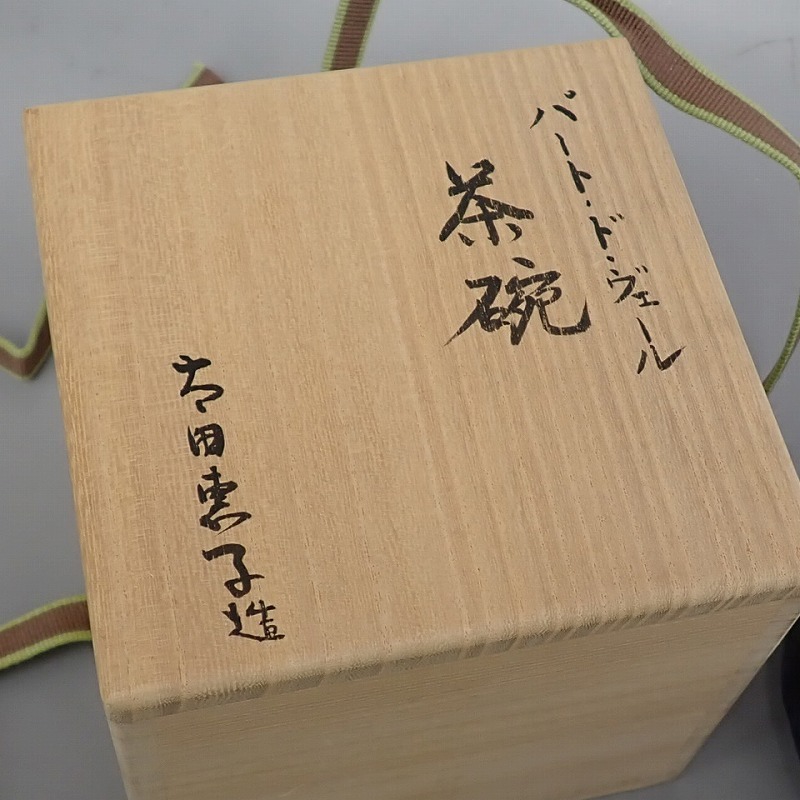 パート・ド・ヴェール
茶碗
吉田恵子造